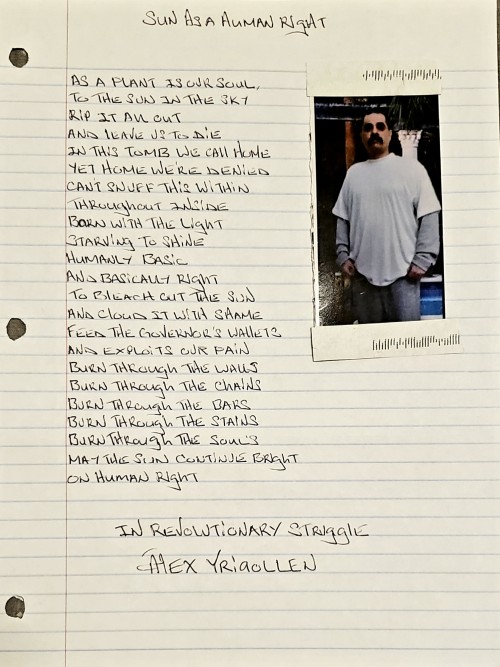 SUN AS A HUMAN RIGHT
AS A PLANT IS OUR SOUL,
TO THE SUN IN THE SKY
RIP IT ALL OUT
AND LEAVE US TO DIE
IN THIS TOMB WE CALL HOME
YET HOME WE'RE DENIED
CAN'T SNUFF THIS WITHIN
THROUGHOUT INSIDE
BORN WITH THE LIGHT
STARVING TO SHINE
HUMANLY BASIC
AND BASICALLY RIGHT
TO BLEACH OUT THE SUN
AND CLOUD IT WITH SHAME
FEED THE GOVERNOR'S WALLETS
AND EXPLOITS OUR PAIN
BURN THROUGH THE WALLS
BURN THROUGH THE CHAINS
BURN THROUGH THE BARS
BURN THROUGH THE STAINS
BURN THROUGH THE SOUL'S
MAY THE SUN CONTINUE BRIGHT
ON HUMAN RIGHT
IN REVOLUTIONARY STRUGGLE
ALEX YRIGOLLEN